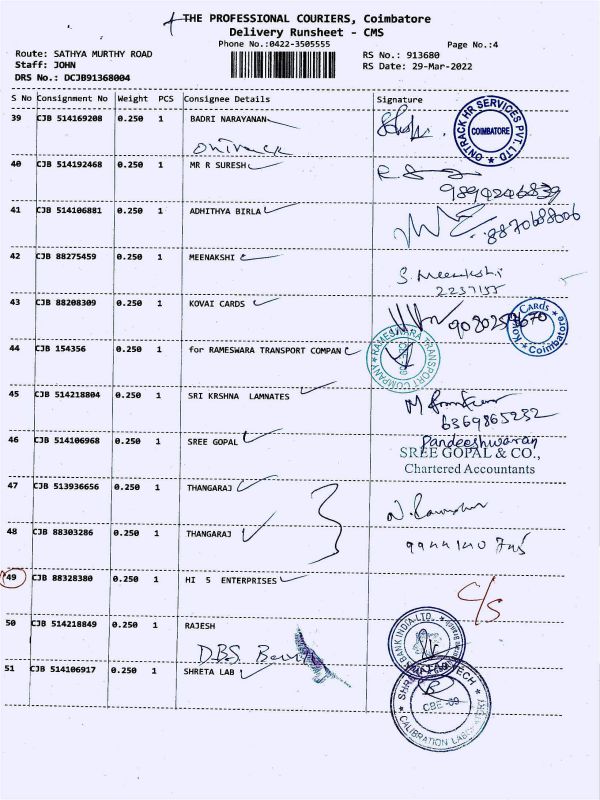 THE PROFESSIONAL COURIERS, Coimbatore
Delivery Runsheet - CMS
Phone No.:0422-3505555 Page No.:4
Route: SATHYA MURTHY ROAD RS No.: 913680
Staff: JOHN RS Date: 29-Mar-2022
DRS No.: DCJB91368004
S No Consignment No Weight PCS Consignee Details Signature
39 CJB 514169208 0.250 1 BADRI NARAYANAN
ONTRACK HR SERVICES PVT. LTD COIMBATORE
40 CJB 514192468 0.250 1 MR R SURESH
9894246839
41 CJB 514106881 0.250 1 ADHITHYA BIRLA
42 CJB 88275459 0.250 1 MEENAKSHI S. Meenakshi
2237155
43 CJB 88208309 0.250 1 KOVAI CARDS
Kovai Cards Coimbatore
44 CJB 154356 0.250 1 for RAMESWARA TRANSPORT COMPAN
RAMESWARA TRANSPORT COMPANY
45 CJB 514218804 0.250 1 SRI KRSHNA LAMNATES
6369865232
46 CJB 514106968 0.250 1 SREE GOPAL Pandeeshwaran
SREE GOPAL & CO.,
Chartered Accountants
47 CJB 513936656 0.250 1 THANGARAJ
48 CJB 88303286 0.250 1 THANGARAJ
49 CJB 88328380 0.250 1 HI 5 ENTERPRISES C/S
50 CJB 514218849 0.250 1 RAJESH
DBS BANK INDIA LTD.
51 CJB 514106917 0.250 1 SHRETA LAB
CBE -09
CALIBRATION LABORATORY